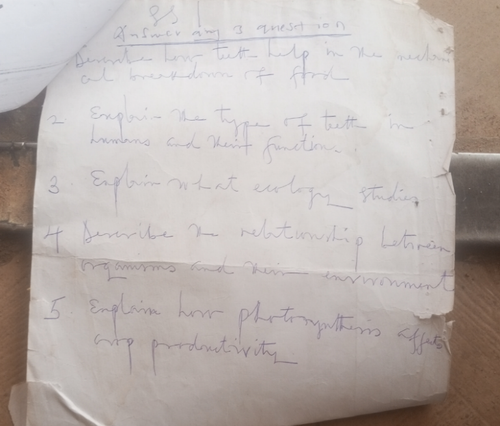 SS 1
Answer any 3 question
Describe how teeth help in the mechani
cal breakdown of food
2 Explain the type of teeth in
humans and their function.
3 Explain what ecology studies
4 Describe the relationship between
organisms and their environment
5. Explain how photosynthesis affects
crop productivity